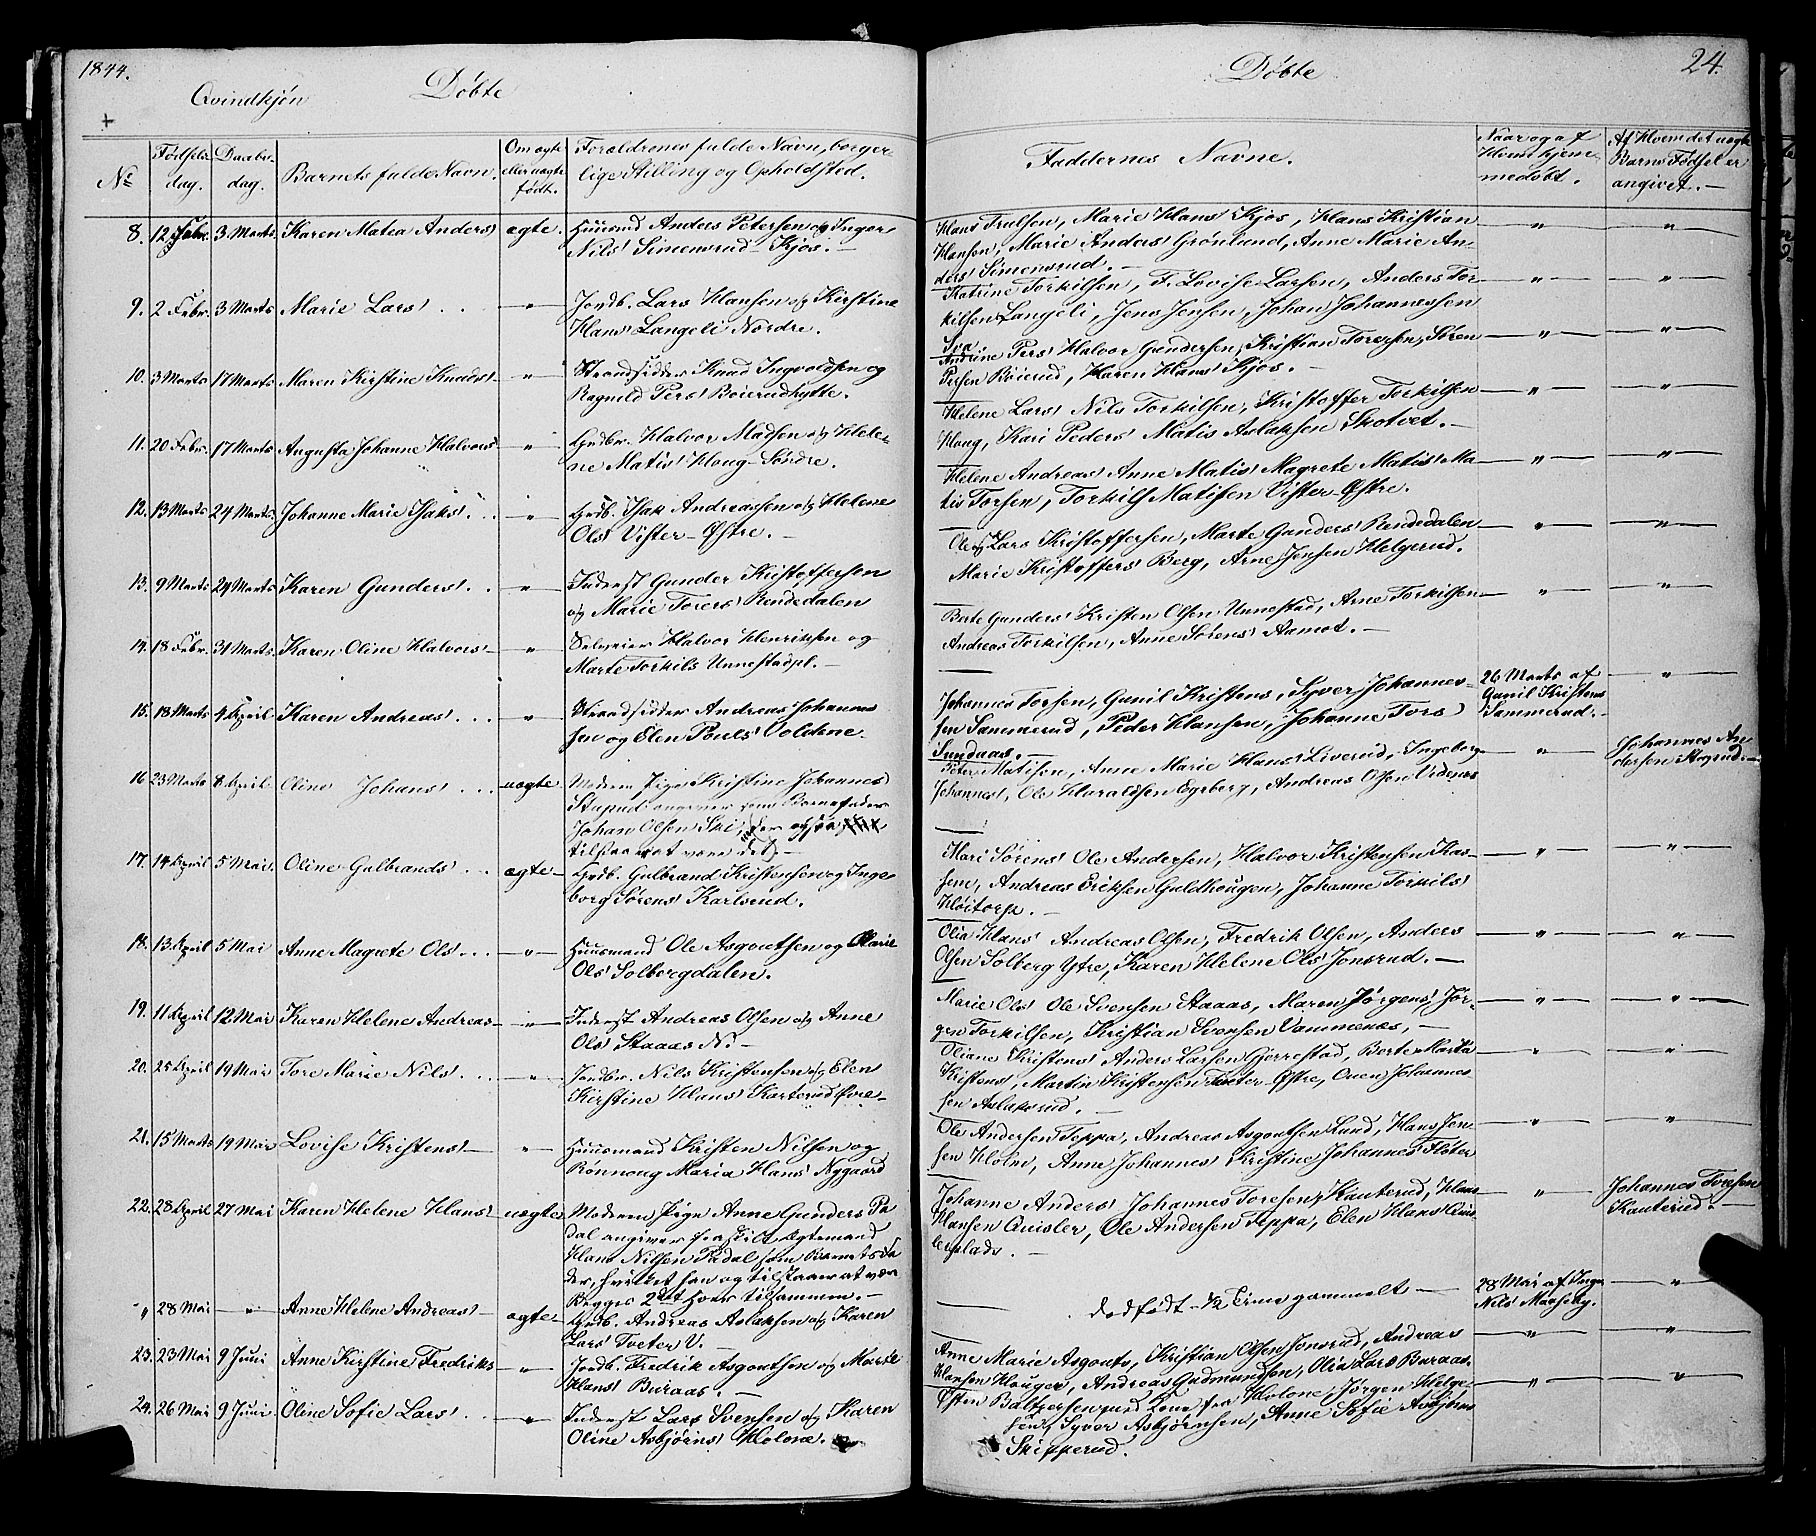 1844.
Qvindkjön
Döbte
№
Födsels
dag.
Daabs-
dag.
Barnets fulde Navn.
Om ægte
eller uægte
födt.
Forældrenes fulde Navn, borger-
lige Stilling og Opholdsted.
8. 12 Febr. 3. Marts Karen Matea Anders' ægte. Huusmd Anders Petersen og Inger
Nils' Simensrud-Kjos. —
9. 2 Febr. 3 Marts Marie Lars' . . — " — Jordb. Lars Hansen og Kirstine
Hans' Langeli Nordre.
10. 3 Marts 17 Marts Maren Kirstine Knuds' — " — Strandsidder Knud Ingvoldsen og
Ragnild Pers' Böierudhytte.
11. 20 Febr. 17 Marts Augusta Johanne Halvors' — " — Grdbr. Halvor Madsen og Hele-
ne Matis' Houg-Söndre.
12. 13 Marts 24 Marts Johanne Marie Isaks' . . — " — Grdb. Isak Andreassen og Helene
Ols' Vister-Østre. —
13. 9 Marts 24 Marts Karen Gunders' . . — " — Inderst Gunder Kristoffersen
og Marie Torers' Rendedalen
14. 18 Febr. 31 Marts Karen Oline Halvors' — " — Selveier Halvor Henriksen og
Marte Torkils' Unnestadpl. —
15. 18 Marts 4 April Karen Andreas' . . — " — Strandsidder Andreas Johanne
sen og Elen Pouls' Voldene.
16 23 Marts 8 April Oline Johans' . . . uægte Moderen Pige Kristine Johannes'
Stuprud angiver som Barnefader
Johan Olsen Ski, der ogsaa
tilstaar at være det. —
17. 14 April 5 Mai. Oline Gulbrands' . . . ægte — Grdb. Gulbrand Kristensen og Inge-
borg Sörens' Karlsrud.
18. 13 April 5 Mai Anne Magrete Ols' . . . — " — Huusmand Ole Asgoutsen og Marie
Ols' Solbergdalen.
19. 11 April 12 Mai Karen Helene Andreas' — " — Inderst Andreas Olsen og Anne
Ols' Staaas N. —
20. 25 April 19 Mai Tore Marie Nils' . . — " — Jordbr. Nils Kristensen og Elen
Kirstine Hans' Karterud Övre —
21. 15 Marts 19 Mai Lovise Kristens' — " — Huusmand Kristen Nilsen og
Rönnoug Maria Hans' Nygaard
22. 28 April 27 Mai Karen Helene Hans' — uægte Moderen Pige Anne Gunders' Pa
dal angiver fraskilt Ægtemand
Hans Nilsen Padal som Barnets Fa
der, hvilket han og tilstaar at være
Begges 2det Hoer tilsammen. —
" 28 Mai — " — Anne Helene Andreas' — ægte — Grdb. Andreas Aslaksen og Karen
Lars' Tveter V. —
23. 23 Mai 9 Juni Anne Kirstine Fredriks' — " — Jordb. Fredrik Asgoutsen og Marie
Hans' Buraas. —
24. 26 Mai 9 Juni Oline Sofie Lars' . . — " — Inderst Lars Svensen og Karen
Oline Asbjörns' Holone.
Döbte
24.
Faddernes Navne.
Naar og af
Hvem hjem-
medöbt.
Af Hvem det uægte
Barns Födsel er
angivet. —
Hans Trulsen, Marie Hans' Kjos, Hans Kristian — " — — " —
Hansen, Marie Anders' Grönlund, Anne Marie An-
ders' Simensrud. —
Katrine Torkilsen, F. Lovise Larsen, Anders Tor- — " — — " —
kilsen Langeli, Jens Jensen, Johan Johannessen
Andrine Pers' Halvor Gundersen, Kristian Toresen, Sören — " — — " —
Persen Böierud, Karen Hans' Kjos. —
Helene Lars' Nils Torkilsen, Kristoffer Torkilsen — " — — " —
Houg, Kari Peders' Matis Aslaksen Skotvet. —
Helene Andreas' Anne Matis' Magrete Matis' Ma- — " — — " —
tis Torsen, Torkils Matisen Vister-Østre.
Ole og Lars Kristoffersen, Marte Gunders' Rendedalen — " — — " —
Marie Kristoffers' Berg, Arne Jensen Helgerud.
Berte Gunders' Kristen Olsen Unnestad, Arne Torkilsen — " — — " —
Andreas Torkilsen, Anne Sörens' Aamot. —
Johannes Torsen, Gunil Kristens', Syver Johannes- 26 Marts af — " —
sen Sammerud, Peder Hansen, Johanne Tors' Gunil Kristens'
Sundaas. — Sammerud. —
Peter Matisen, Anne Marie Hans' Liverud, Ingeborg — " — Johannes An
Johannes', Ole Haraldsen Egeberg, Andreas Olsen Videnæs dersen
Mari Sörens' Ole Andersen, Halvor Kristensen Kas- — " — — " —
sene, Andreas Eriksen Guldhougen, Johanne Torkils'
Höitorp. —
Olia Hans' Andreas Olsen, Fredrik Olsen, Anders — " — — " —
Olsen Solberg Ytre, Karen Helene Ols' Jonsrud. —
Marie Ols' Ole Svensen Staaas, Maren Jörgens', Jör- — " — — " —
gen Torkilsen, Kristian Svensen Vammenæs, —
Oliane Kristens' Anders Larsen Gjerrestad, Berte Marta — " — — " —
Kristens', Martin Kristensen Tveter-Østre, Ouen Johannes
sen Aslaksrud. —
Ole Andersen Teppa, Andreas Asgoutsen Lund, Hans Jen- — " — — " —
sen Holm, Anne Johannes' Kristine Johannes' Floter
Johanne Anders' Johannes Toresen Kauterud, Hans — " — Johannes Toresen
Hansen Quisler, Ole Andersen Teppa, Elen Hans' Quis- Kauterud. —
lerplads. —
— dödfödt — ½ Time gammelt — 28 Mai af Inger — " —
Nils' Monseby.
Anne Marie Asgouts', Kristian Olsen Jonsrud, Andreas — " — — " —
Hansen Houger, Andreas Gudmundsen, Olia Lars' Buraas.
Østen Baltzersen med Kone fra Holone, Jörgen Helge- — " — — " —
sen, Syver Asbjörnsen, Anne Sofie Asbjörns'
Skipperud.